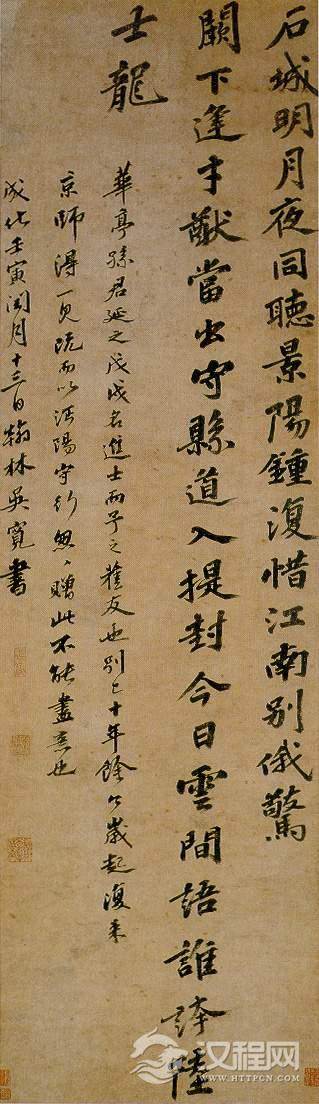 石城明月夜同聽景陽鍾復惜江南別俄驚
闕下逢才猷當出守縣道入提封今日雲間語誰誇陸
士龍
華亭孫君延之戊戌名進士而予之舊友也別已十年餘今歲起復來
京師得一見旣而以沔陽守行匆々贈此不能盡意也
成化壬寅閏月十三日翰林吳寬書
汉程网
WWW.HTTPCN.COM